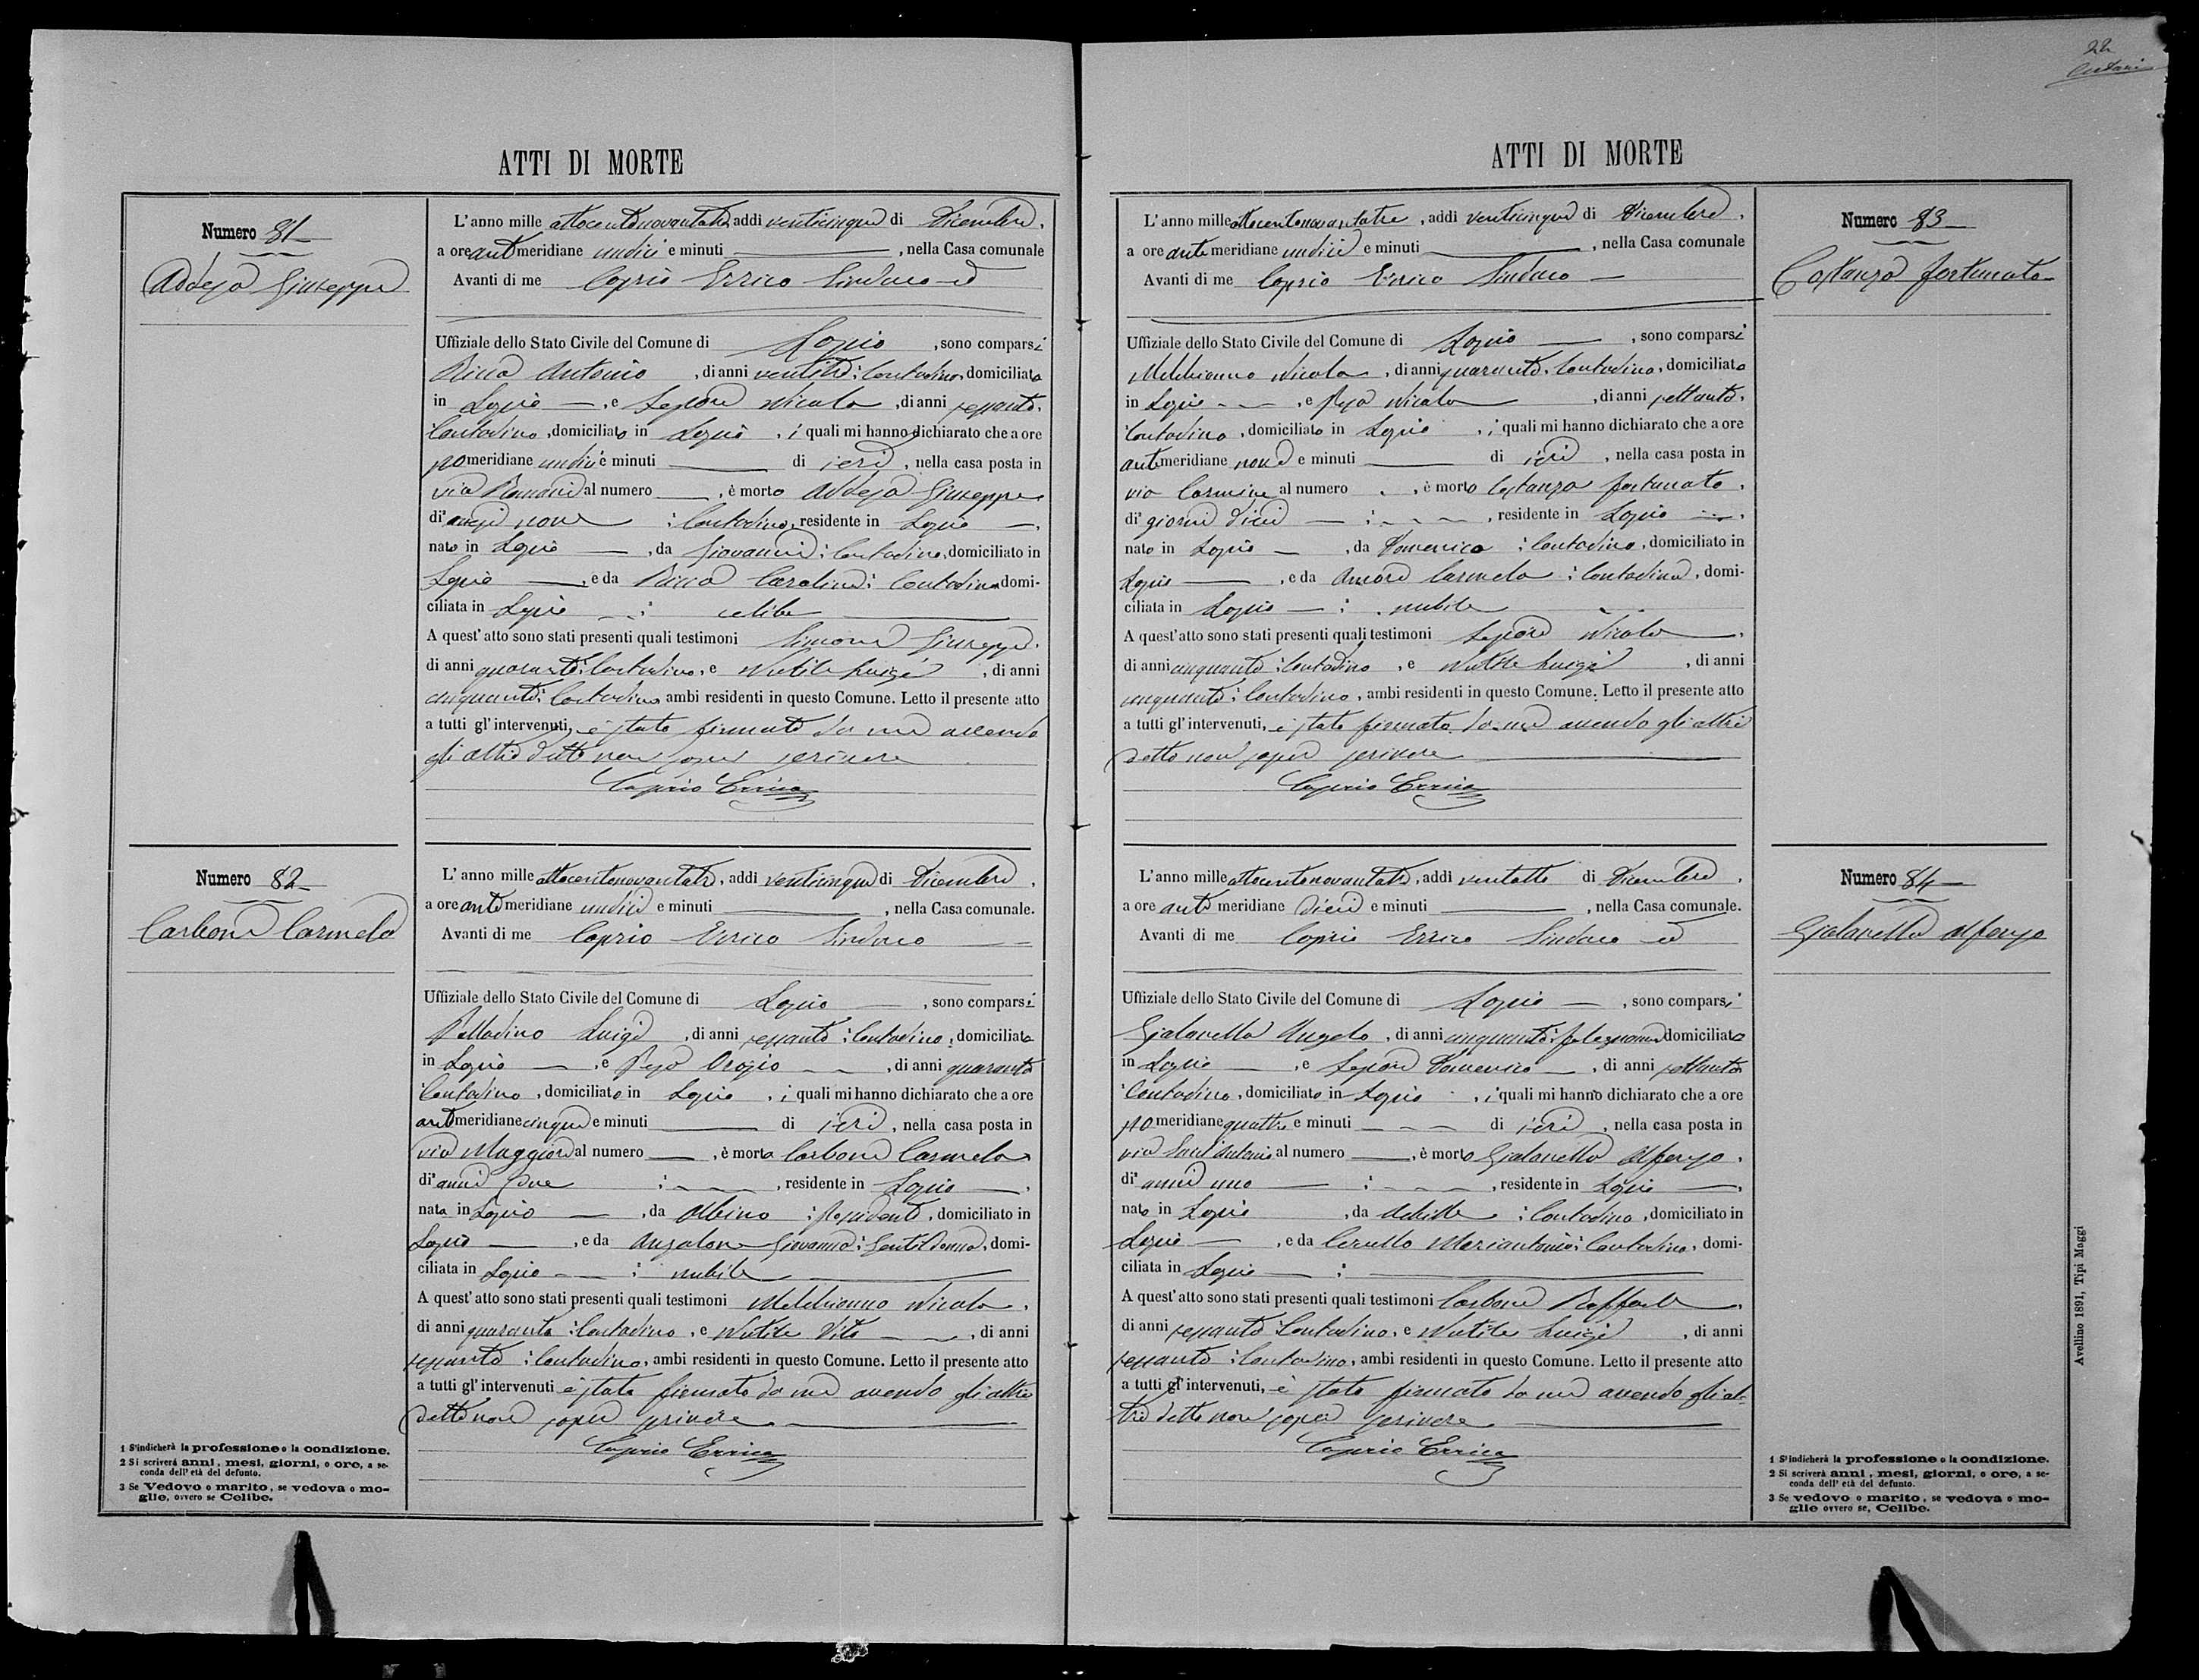 22
ATTI DI MORTE
Numero 81
Addeja Giuseppe
L'anno mille ottocentonovantatre, addì venticinque di Dicembre,
a ore antimeridiane undici e minuti, nella Casa comunale
Avanti di me Caprio Errico Sindaco ed
Uffiziale dello Stato Civile del Comune di Lapio, sono comparsi
Ricca Antonio, di anni ventitre; Contadino, domiciliato
in Lapio, e Lepore Nicola, di anni sessanta,
Contadino, domiciliato in Lapio, i quali mi hanno dichiarato che a ore
pomeridiane undici e minuti di ieri, nella casa posta in
via al numero, è morto Addeja Giuseppe
di nove; Contadino, residente in Lapio,
nato in Lapio, da Giovanni; Contadino, domiciliato in
Lapio, e da Ricca Carolina; Contadina domi-
ciliata in Lapio; celibe
A quest'atto sono stati presenti quali testimoni Simone Giuseppe,
di anni quaranta; Contadino, e Nutile Luigi, di anni
cinquanta; Contadino, ambi residenti in questo Comune. Letto il presente atto
a tutti gl'intervenuti, è stato firmato da me avendo
gli altri detto non saper scrivere
Caprio Errico
Numero 82
Carbone Carmela
L'anno mille ottocentonovantatre, addì venticinque di Dicembre,
a ore antimeridiane undici e minuti, nella Casa comunale.
Avanti di me Caprio Errico Sindaco
Uffiziale dello Stato Civile del Comune di Lapio, sono comparsi
Palladino Luigi, di anni sessanta; Contadino, domiciliato
in Lapio, e Orazio, di anni quaranta
Contadino, domiciliato in Lapio, i quali mi hanno dichiarato che a ore
antimeridiane cinque e minuti di ieri, nella casa posta in
via Maggiore al numero, è morta Carbone Carmela
di anni due;, residente in Lapio,
nata in Lapio, da Albino; Possidente, domiciliato in
Lapio, e da Anzalone Giovanna; Gentildonna, domi-
ciliata in Lapio; nubile
A quest'atto sono stati presenti quali testimoni Melchionno Nicola,
di anni quaranta; Contadino, e Nutile Vito, di anni
sessanta; Contadino, ambi residenti in questo Comune. Letto il presente atto
a tutti gl'intervenuti è stato firmato da me avendo gli altri
detto non saper scrivere
Caprio Errico
1 S'indicherà la professione o la condizione.
2 Si scriverà anni, mesi, giorni, o ore, a se-
conda dell'età del defunto.
3 Se Vedovo o marito, se vedova o mo-
glie, ovvero se Celibe.
ATTI DI MORTE
Numero 83
Costanza Fortunata
L'anno mille ottocentonovantatre, addì venticinque di Dicembre,
a ore antimeridiane undici e minuti, nella Casa comunale
Avanti di me Caprio Errico Sindaco
Uffiziale dello Stato Civile del Comune di Lapio, sono comparsi
Melchionno Nicola, di anni quaranta, Contadino, domiciliato
in Lapio, e Nicola, di anni settanta,
Contadino, domiciliato in Lapio, i quali mi hanno dichiarato che a ore
antimeridiane nove e minuti di ieri, nella casa posta in
via Carmine al numero, è morta Costanza Fortunata,
di giorni dieci;, residente in Lapio,
nata in Lapio, da Domenico; Contadino, domiciliato in
Lapio, e da Amore Carmela; Contadina, domi-
ciliata in Lapio; nubile
A quest'atto sono stati presenti quali testimoni Lepore Nicola,
di anni cinquanta; Contadino, e Nutile Luigi, di anni
cinquanta; Contadino, ambi residenti in questo Comune. Letto il presente atto
a tutti gl'intervenuti, è stato firmato da me avendo gli altri
detto non saper scrivere
Caprio Errico
Numero 84
Gialanella Alfonso
L'anno mille ottocentonovantatre, addì ventotto di Dicembre,
a ore antimeridiane dieci e minuti, nella Casa comunale.
Avanti di me Caprio Errico Sindaco ed
Uffiziale dello Stato Civile del Comune di Lapio, sono comparsi
Gialanella Angelo, di anni cinquanta; falegname domiciliato
in Lapio, e Lepore Domenico, di anni settanta
Contadino, domiciliato in Lapio, i quali mi hanno dichiarato che a ore
pomeridiane quattro e minuti di ieri, nella casa posta in
via Sant'Antonio al numero, è morto Gialanella Alfonso,
di anni uno;, residente in Lapio,
nato in Lapio, da Achille; Contadino, domiciliato in
Lapio, e da Cerullo Mariantonia; Contadina, domi-
ciliata in Lapio;
A quest'atto sono stati presenti quali testimoni Carbone Raffaele,
di anni sessanta; Contadino, e Nutile Luigi, di anni
sessanta; Contadino, ambi residenti in questo Comune. Letto il presente atto
a tutti gl'intervenuti, è stato firmato da me avendo gli al-
tri detto non saper scrivere
Caprio Errico
1 S'indicherà la professione o la condizione.
2 Si scriverà anni, mesi, giorni, o ore, a se-
conda dell'età del defunto.
3 Se vedovo o marito, se vedova o mo-
glie ovvero se, Celibe.
Avellino 1891, Tipi Maggi